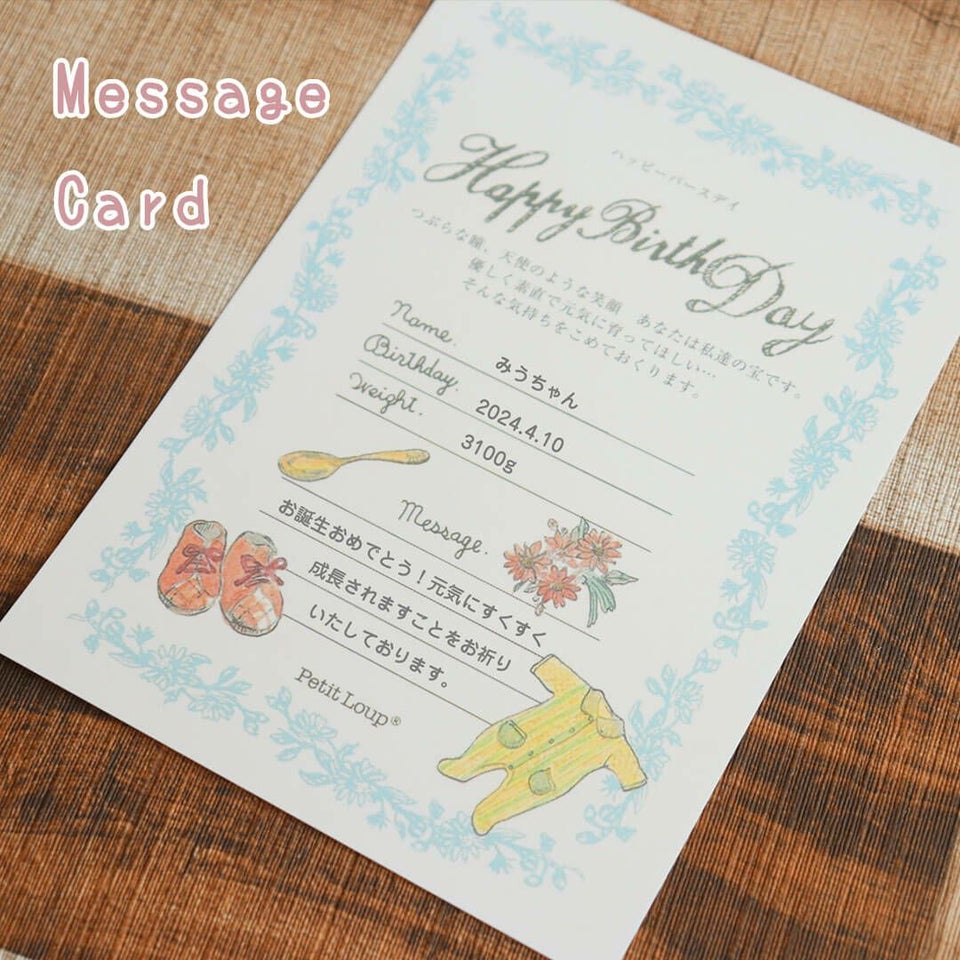 Message
Card
ハッピーバースデイ
Happy Birth Day
つぶらな瞳、天使のような笑顔 あなたは私達の宝です。
優しく素直で元気に育ってほしい…
そんな気持ちをこめておくります。
Name.
みうちゃん
Birthday.
2024.4.10
Weight.
3100g
Message.
お誕生おめでとう！元気にすくすく
成長されますことをお祈り
いたしております。
Petit Loup®